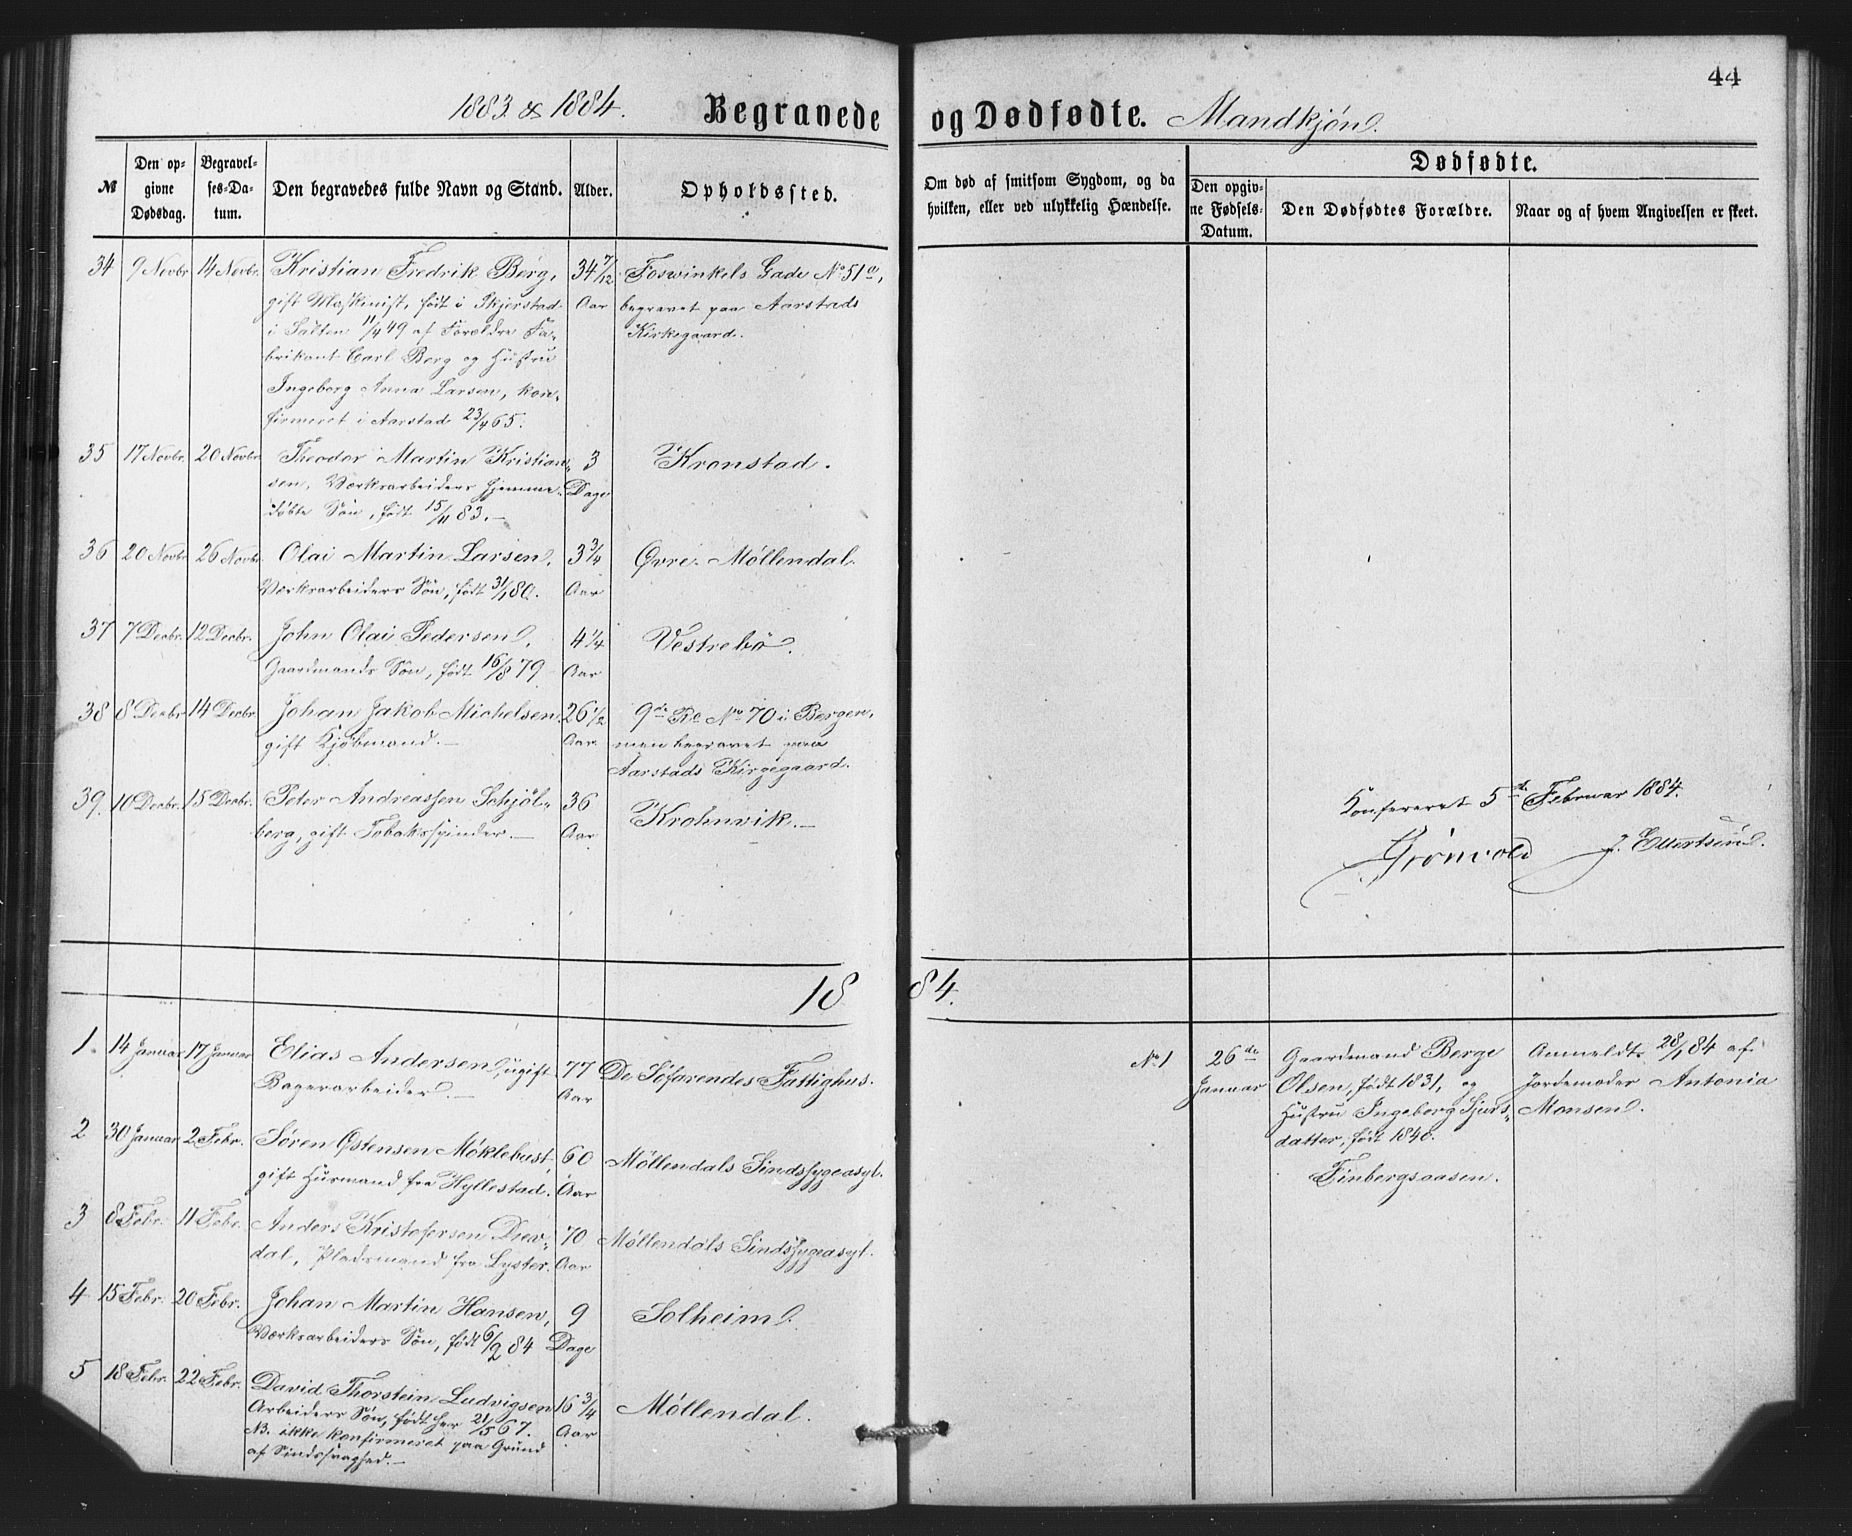 44
1883 & 1884. Begravede og Dødfødte. Mandkjøn.
№
Den op-
givne
Dødsdag.
Begravel-
ses-Da-
tum.
Den begravedes fulde Navn og Stand.
Alder.
Opholdssted.
Om død af smitsom Sygdom, og da
hvilken, eller ved ulykkelig Hændelse.
Dødfødte.
Den opgiv-
ne Fødsels-
Datum.
Den Dødfødtes Forældre.
Naar og af hvem Angivelsen er skeet.
34 9 Novbr 14 Novbr. Kristian Fredrik Berg, 34 7/12 Foswinkels Gade No 51a,
gift Maskinist, født i Skjerstad Aar begravet paa Aarstads
i Salten 11/4 49 af Forældre Fa- Kirkegaard.
brikant Carl Berg og Hustru
Ingeborg Anna Larsen, kon-
firmeret i Aarstad 23/4 65.
35 17 Novbr. 20 Novbr Theodor Martin Kristian- 3 Kronstad.
sen, Værksarbeiders hjemme- Dage
døbte Søn, født 15/11 83.—
36 20 Novbr 26 Novbr. Olai Martin Larsen, 3 3/4 Øvre Møllendal.
Værksarbeiders Søn, født 31/1 80. Aar
37 7 Decbr. 12 Decbr. John Olai Pedersen, 4 1/4 Vestrebø.
Gaardmands Søn, født 16/8 79 Aar
38 8 Decbr 14 Decbr Johan Jakob Michelsen 26 1/2 9de Ro No 70 i Bergen,
gift Kjøbmand.— Aar. men begravet paa
Aarstads Kirgegaard.
39. 10 Decbr. 15 Decbr. Peter Andreassen Schjøl- 36 Krohnvik.—
berg, gift Tobaksspinder.— Aar
Konfereret 5te Februar 1884.
Grønvold J. Ellertsen.
1884.
1. 14 Januar 17 Januar Elias Andersen, ugift 77 De Söfarendes Fattighus.
Bagerarbeider.— Aar
2 30 Januar 2 Febr. Søren Østensen Møklebust, 60 Møllendals Sindssygeasyl.
gift Husmand fra Hyllestad. Aar
3 8 Febr. 11 Febr. Anders Kristofersen Drev- 70 Møllendals Sindssygeasyl.
dal, Pladsmand fra Lyster. Aar
4 15 Febr. 20 Febr. Johan Martin Hansen, 9 Solheim.
Værksarbeiders Søn, født 6/2 84 Dage
5 18 Febr. 22 Febr. David Thorstein Ludvigsen 16 3/4 Møllendal.
Arbeiders Søn, født her 21/5 67. Aar
NB. ikke konfirmeret paa Grund
af Sindssvaghed.—
No 1 26de Gaardmand Berge Anmeldt 28/1 84 af
Januar Olsen, født 1831, og Jordemoder Antonia
Hustru Ingeborg Sjurs- Monsen.
datter, født 1840.
Finbergsaasen.